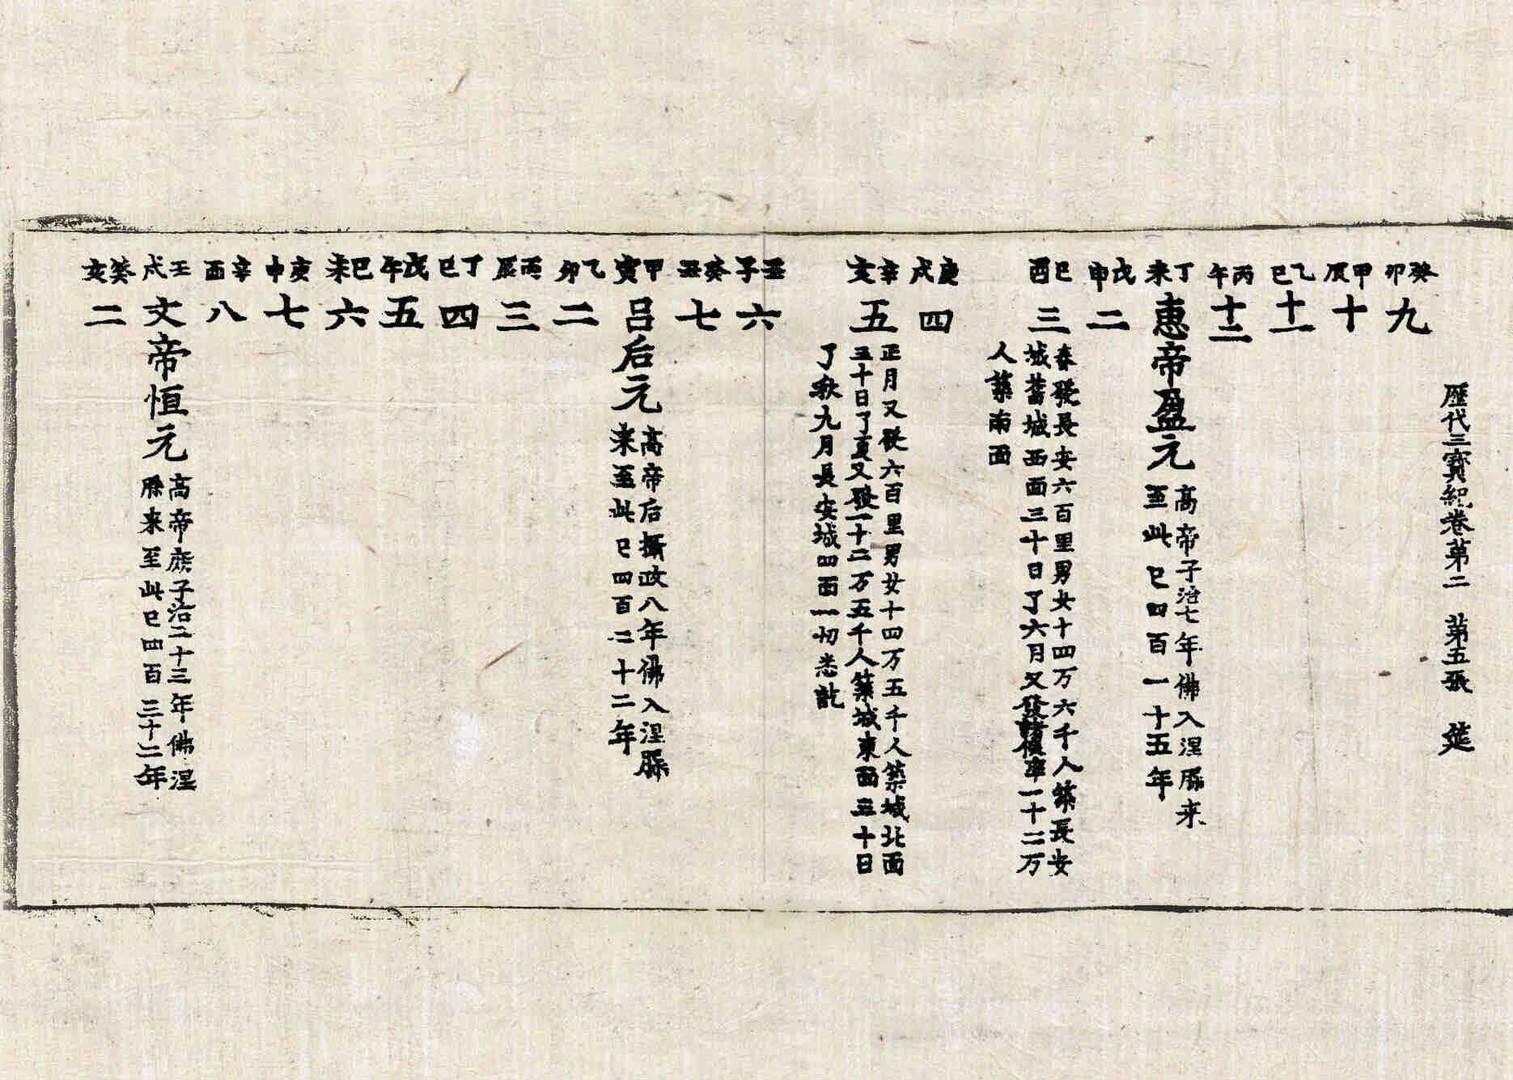 歷代三寳紀卷第二 第五張 筵
癸卯 九
甲辰 十
乙巳 十一
丙午 十二
丁未 惠帝盈元
高帝子治七年佛入涅槃来
至此巳四百一十五年
戊申 二
巳酉 三
春發長安六百里男女十四万六千人築長安
城舊城西面三十日了六月又發諸侯率一十二万
人築南面
庚戌 四
辛亥 五
正月又發六百里男女十四万五千人築城北面
三十日了夏又發一十二万五千人築城東面三十日
了秋九月長安城四面一切悉訖
壬子 六
癸丑 七
甲寅 吕后元
高帝后攝政八年佛入涅槃
来至此巳四百二十二年
乙卯 二
丙辰 三
丁巳 四
戊午 五
巳未 六
庚申 七
辛酉 八
壬戌 文帝恒元
高帝庶子治二十三年佛涅
槃来至此巳四百三十二年
癸亥 二